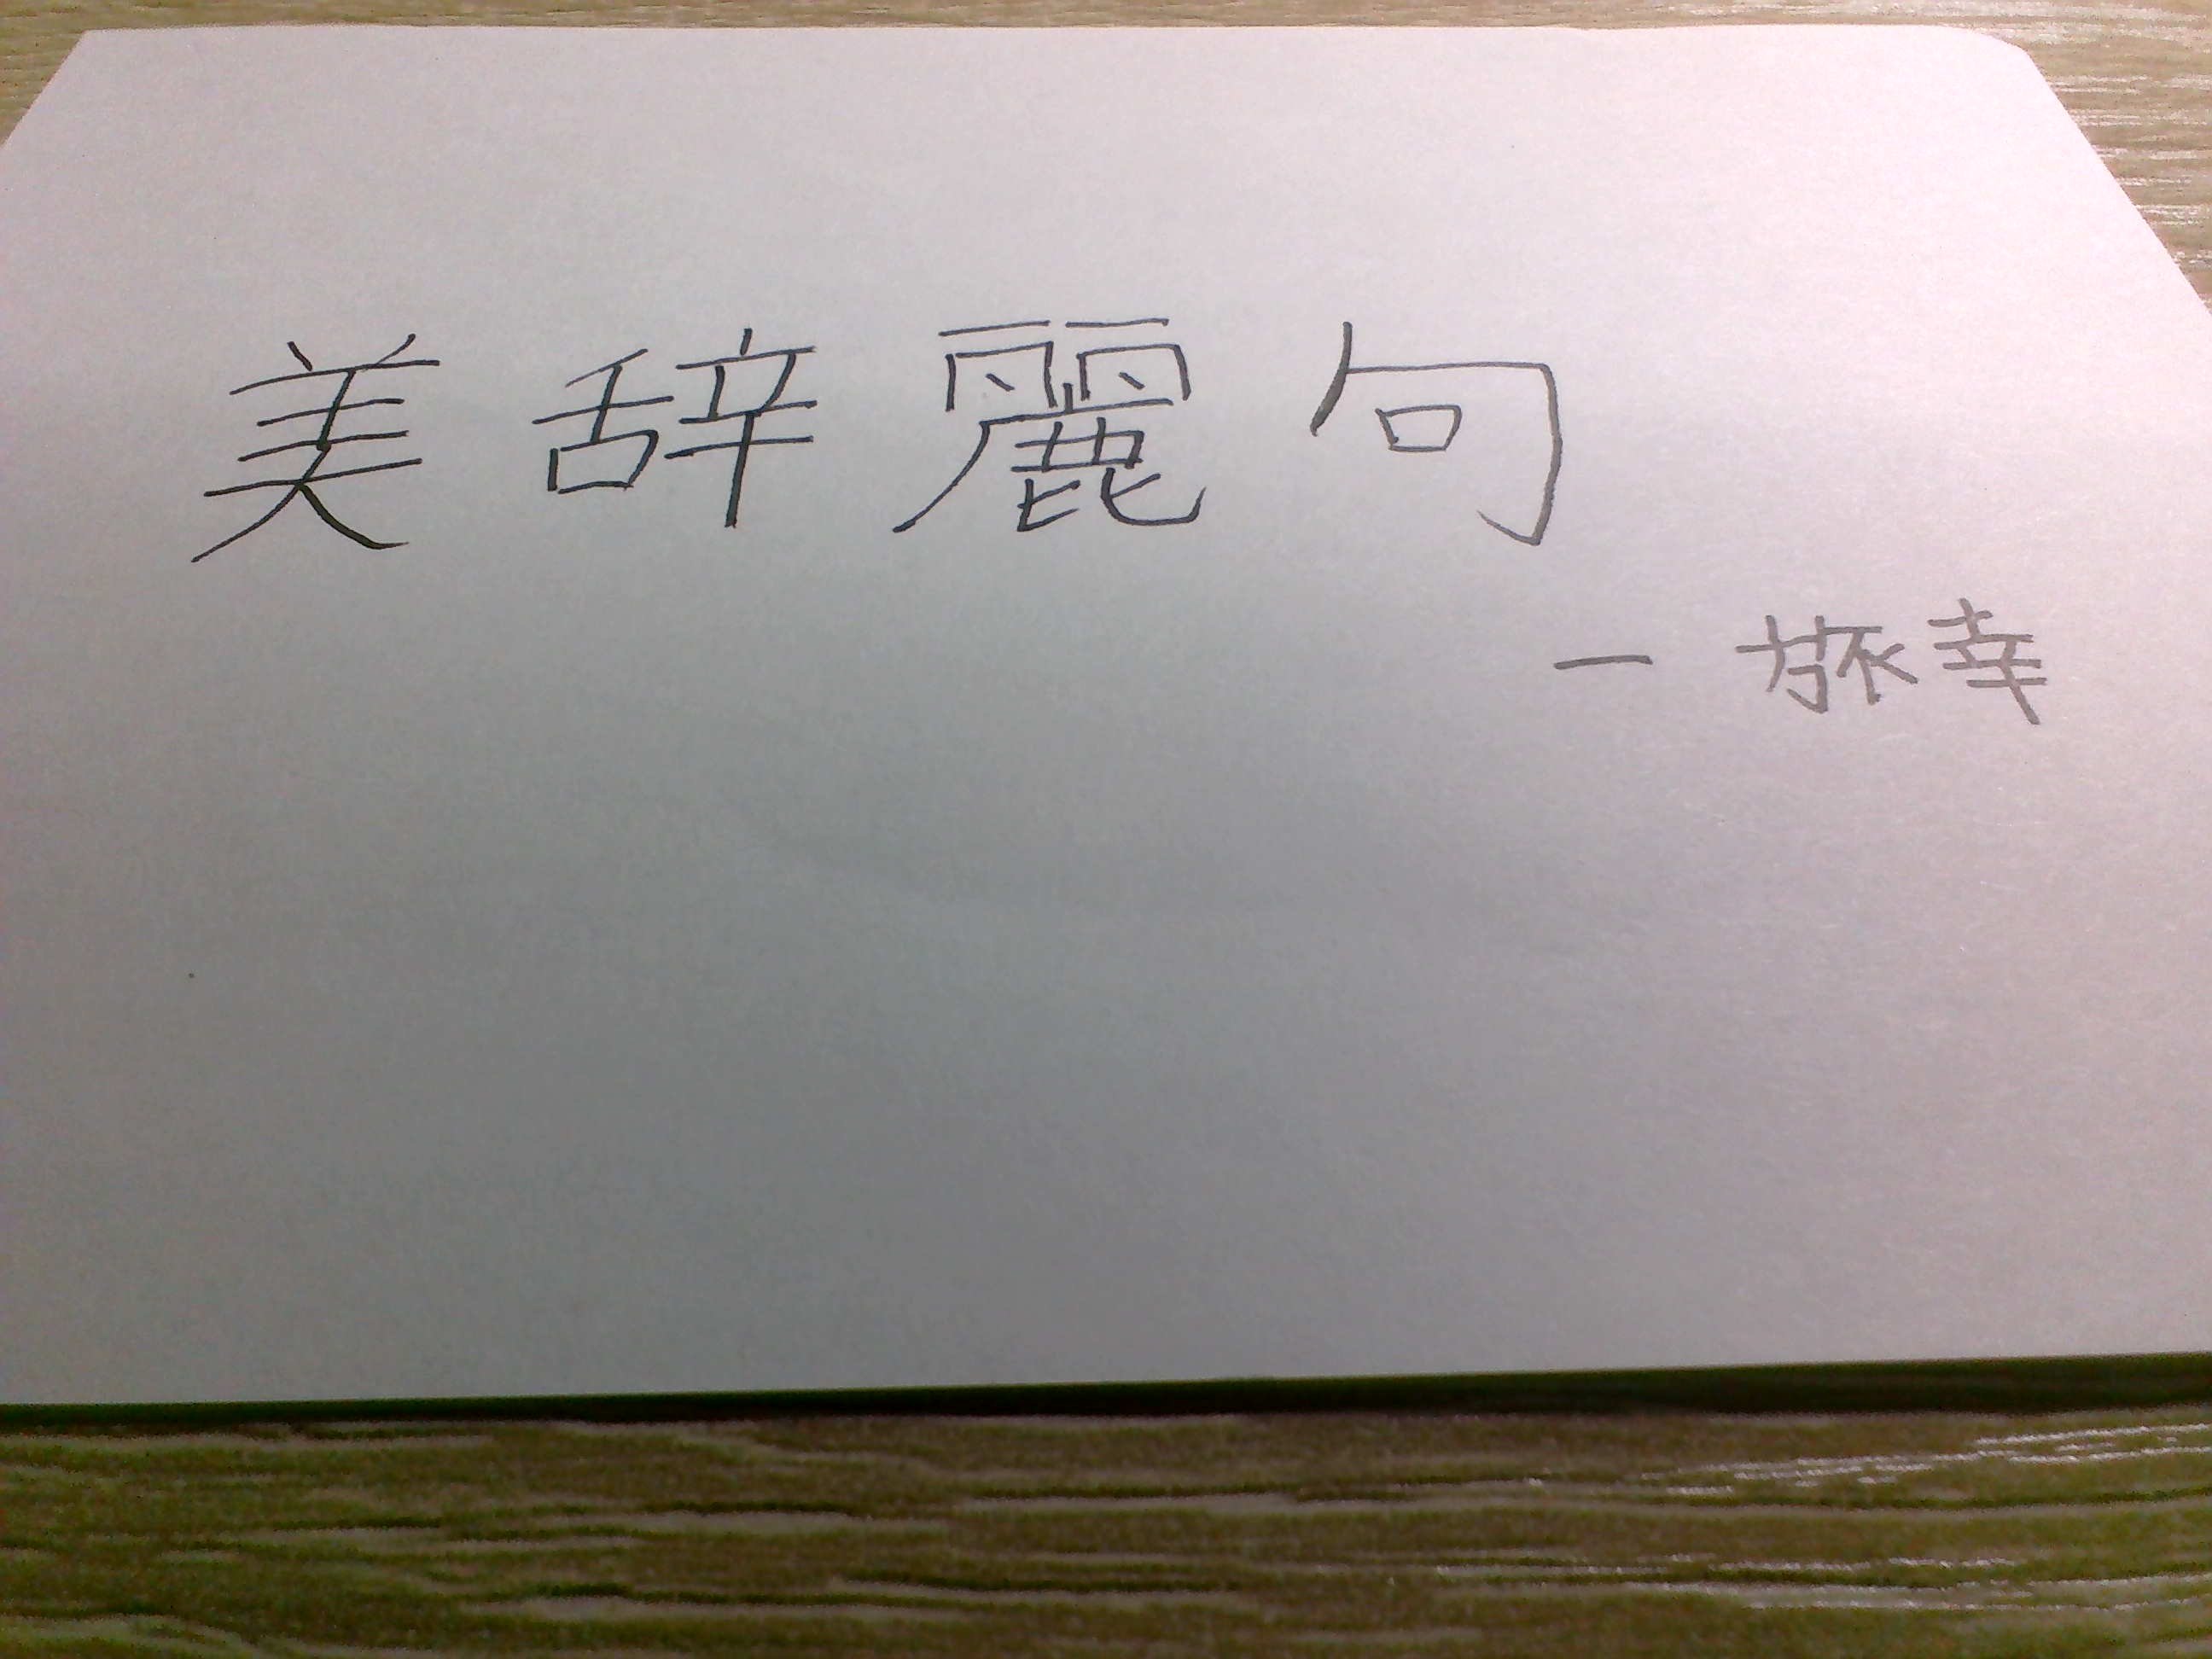 美辞麗句
— 旅幸